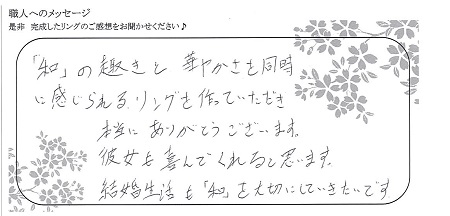 職人へのメッセージ
是非 完成したリングのご感想をお聞かせください♪
「和」の趣きと 華やかさを同時
に感じられる リングを作っていただき
本当に ありがとうございます。
彼女も喜んでくれると思います。
結婚生活も「和」を大切にしていきたいです